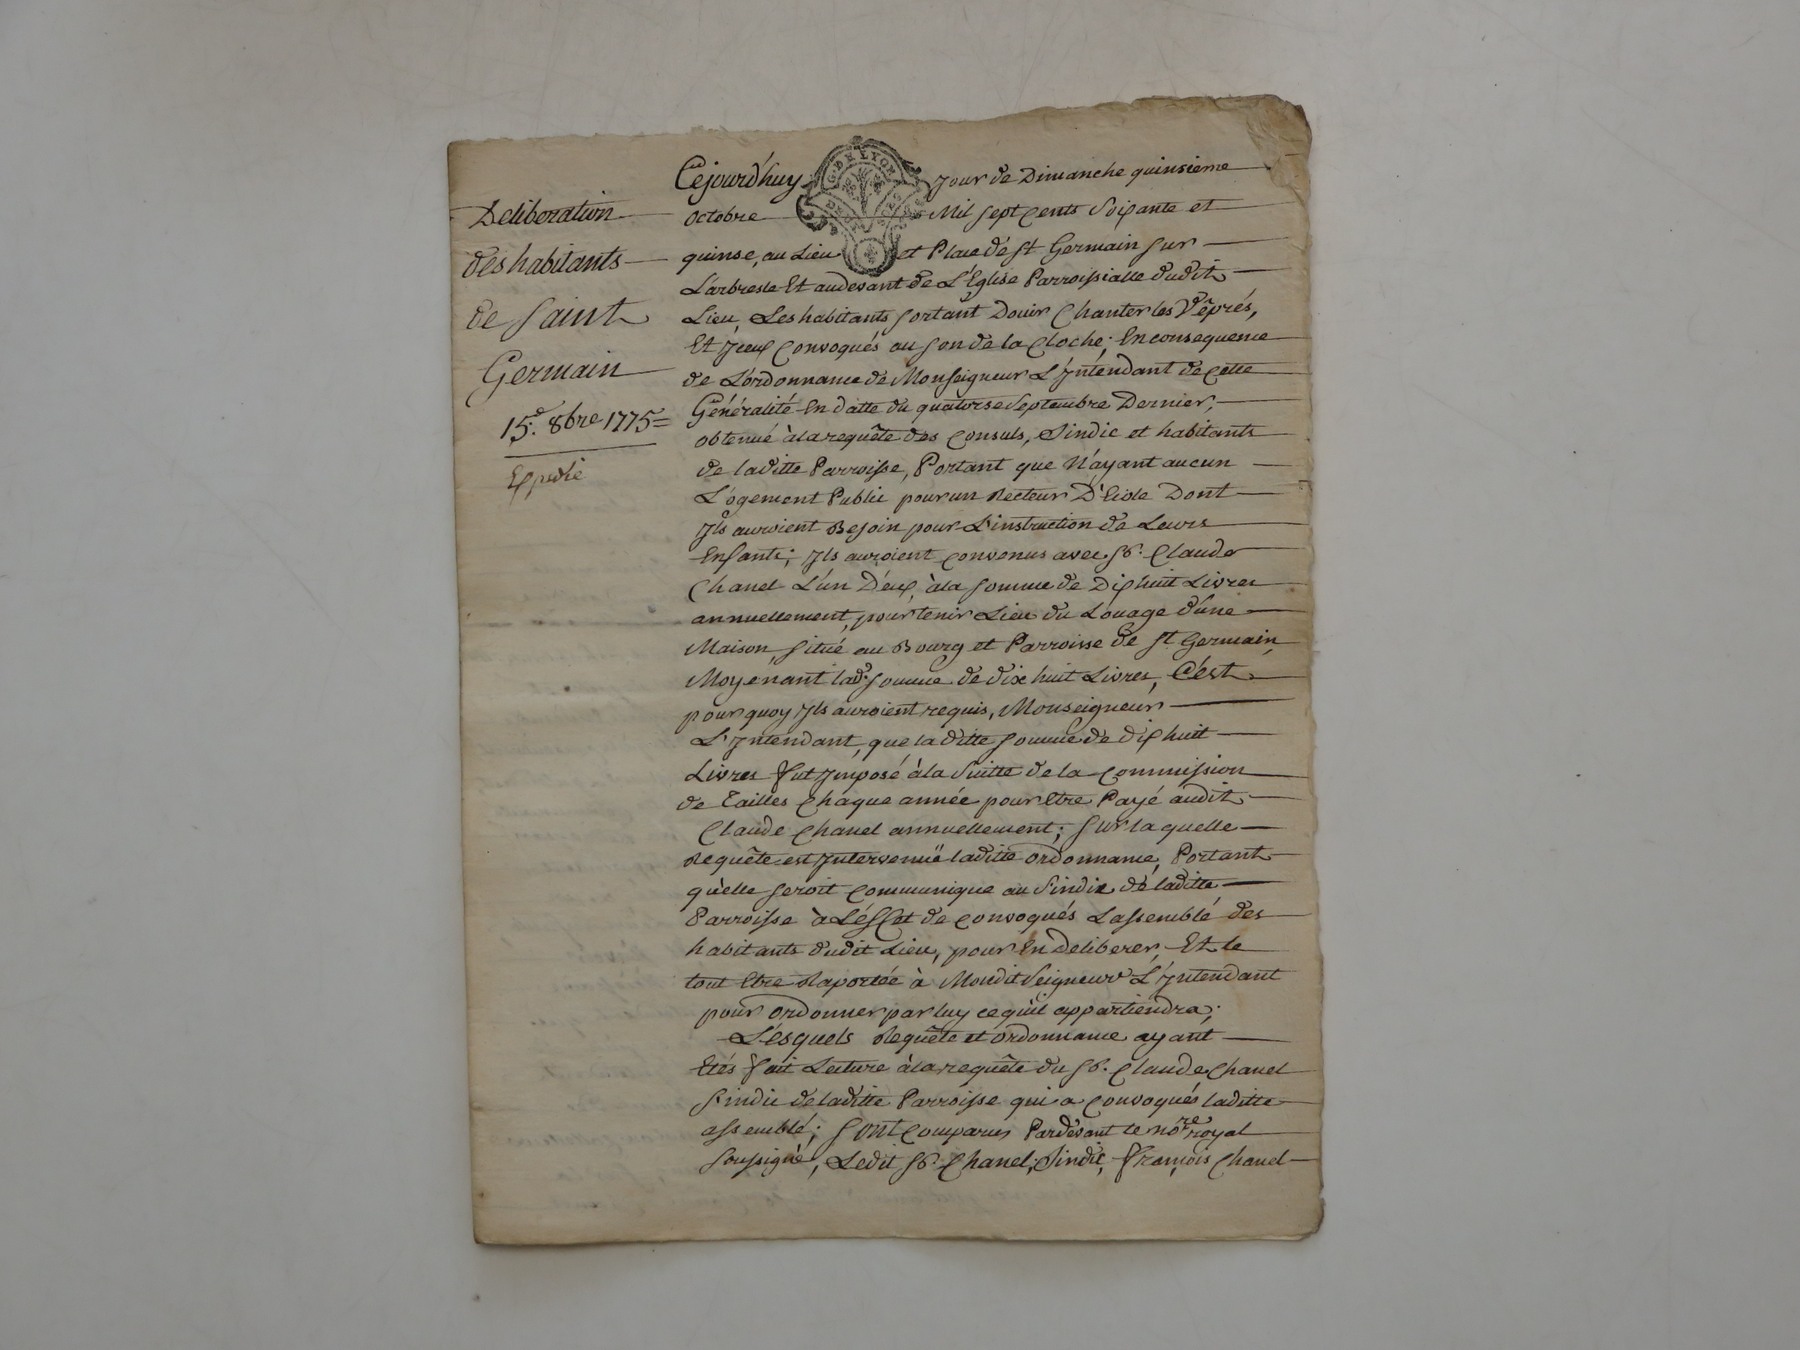 Deliberation
des habitants
de Saint
Germain
15e. 8bre 1775=
Expedié
G. DE LYON
Cejourd'huy Jour de Dimanche quinsieme
octobre Mil sept cents soixante et
quinse, au Lieu et Place de st Germain sur
L'arbresle Et audevant de L'Eglise Parroissialle dudit
Lieu, Les habitants sortant Douir Chanter les Vêprés,
Et Jceux convoqués au son de la Cloche; En consequence
de L'ordonnance de Monseigneur L'Jntendant de cette
Généralité En datte du quatorse Septembre Dernier,
obtenué à la requête des Consuls, Sindic et habitants
de laditte Parroisse, Portant que N'ayant aucun
L'ogement Public pour un Recteur D'Ecole Dont
Jls auroient Besoin pour L'instruction de Leurs
Enfants; Jls auroient convenus avec Sr. Claude
Chanel L'un D'eux, à la somme de Dixhuit Livres
annuellement, pour tenir Lieu du Louage d'une
Maison, situé au Bourg et Parroisse de St Germain,
Moyenant lad. somme de dix huit Livres, C'est
pourquoy Jls auroient requis, Monseigneur
L'Jntendant, que laditte somme de dixhuit
Livres fut Jmposé à la Suitte de la Commission
de Tailles Chaque année pour Etre Payé audit
Claude Chanel annuellement; sur laquelle
Requête est Jntervenuë laditte ordonnance, Portant
qu'elle seroit communique au Sindic de laditte
Parroisse à L'éffet de convoqués L'assemblé des
habitants dudit Lieu, pour En Deliberer, Et le
tout Etre Raportée à Mondit Seigneur L'Jntendant
pour ordonner par luy ce qu'il appartiendra;
L'esquels Requête et ordonnance ayant
Etés fait Lecture à la requête du Sr. Claude Chanel
Sindic de laditte Parroisse qui a convoqués laditte
assemblé; sont comparus Pardevant le nore royal
soussigné, Ledit Sr. Chanel, Sindic, François Chanel